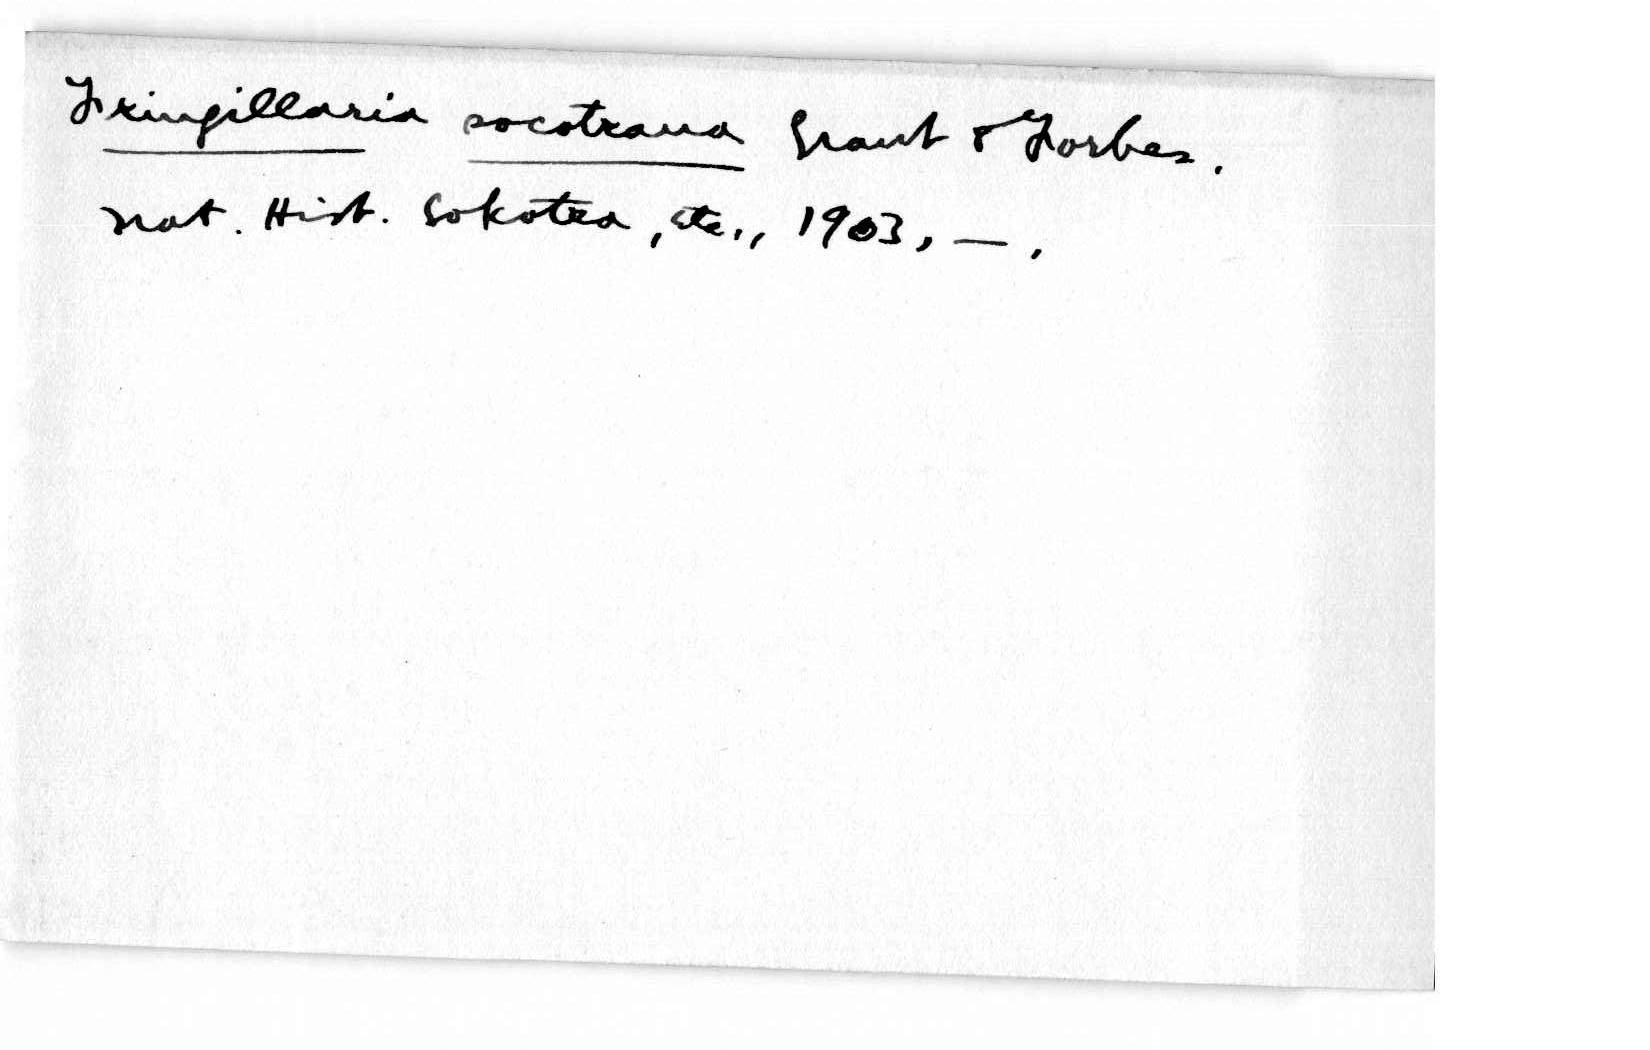 Fringillaria socotrana Grant & Forbes.
Nat. Hist. Sokotra, etc., 1903, —.